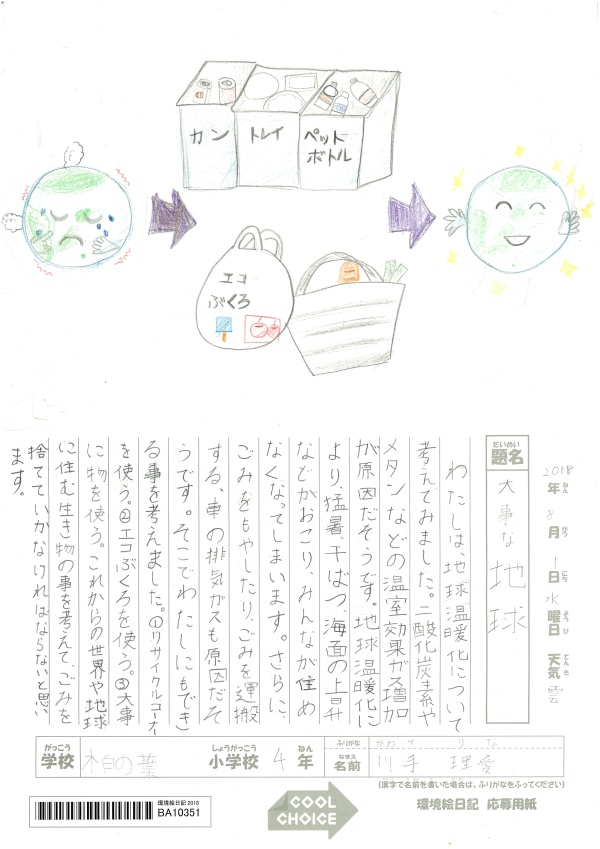 カン
トレイ
ペット
ボトル
エコ
ぶくろ
2018年ねん8月がつ1日にち水曜日ようび天気てんき雲
だいめい
題名
大事な地球
わたしは、地球温暖化について
考えてみました。二酸化炭素や
メタンなどの温室効果ガス増加
が原因だそうです。地球温暖化に
より、猛暑、干ばつ、海面の上昇
などがおこり、みんなが住め
なくなってしまいます。さらに、
ごみをもやしたり、ごみを運搬
する、車の排気ガスも原因だそ
うです。そこでわたしにもでき
る事を考えました。①リサイクルコーナー
を使う。②エコぶくろを使う。③大事
に物を使う。これからの世界や地球
に住む生き物の事を考えて、ごみを
捨てていかなければならないと思い
ます。
がっこう
学校
柏の葉
しょうがっこう
小学校
4
ねん
年
ふりがな
かわ て り な
なまえ
名前
川手 理愛
(漢字で名前を書いた場合は、ふりがなをふってください)
環境絵日記 2018
BA10351
COOL
CHOICE
環境絵日記 応募用紙